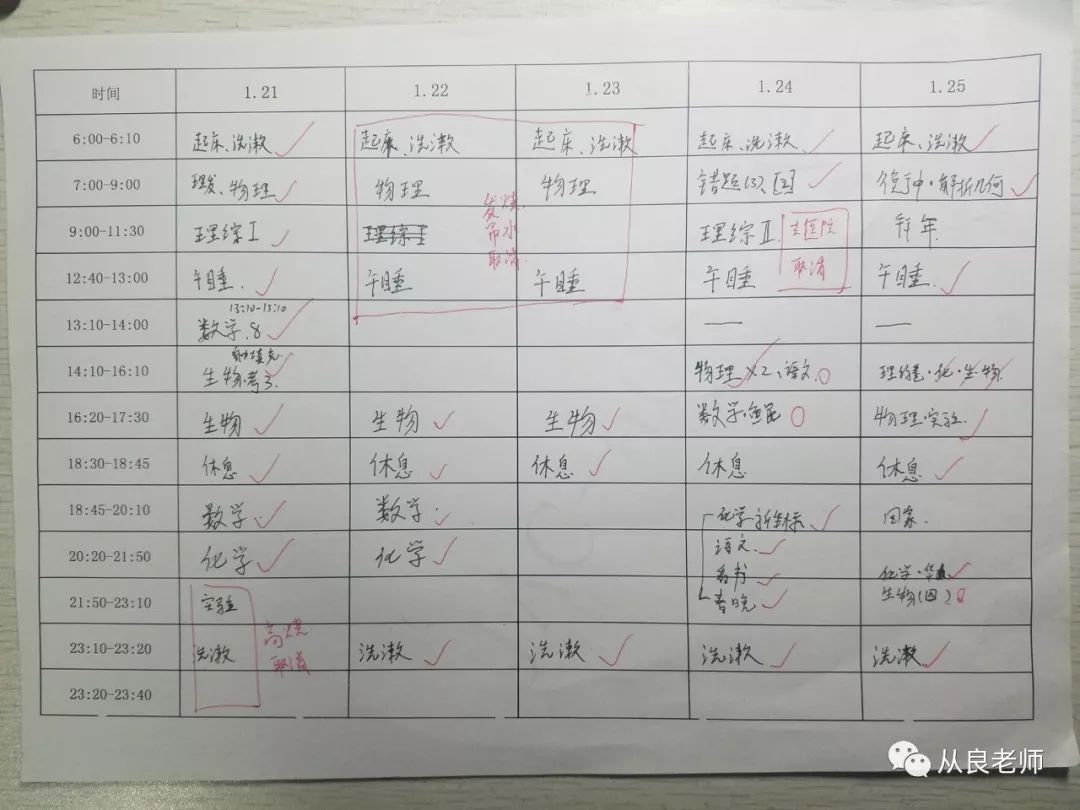 时间 1.21 1.22 1.23 1.24 1.25
6:00-6:10 起床、洗漱 起床、洗漱 起床、洗漱 起床、洗漱 起床、洗漱
7:00-9:00 理发、物理 物理 物理 错题(3)、 解析几何
发烧
9:00-11:30 理综I 理综I 吊水 理综II 主住院 拜年
取消 取消
12:40-13:00 午睡 午睡 午睡 午睡 午睡
13:10-15:10
13:10-14:00 数学.8 — —
填充
14:10-16:10 生物考3. 物理×2、语文 化·生物
16:20-17:30 生物 生物 生物 数学 物理·实验
18:30-18:45 休息 休息 休息 休息 休息
18:45-20:10 数学 数学 化学 回家
语文
20:20-21:50 化学 化学 看书 化学
春晚 生物(四)
21:50-23:10 实验
高烧
取消
23:10-23:20 洗漱 洗漱 洗漱 洗漱 洗漱
23:20-23:40
从良老师